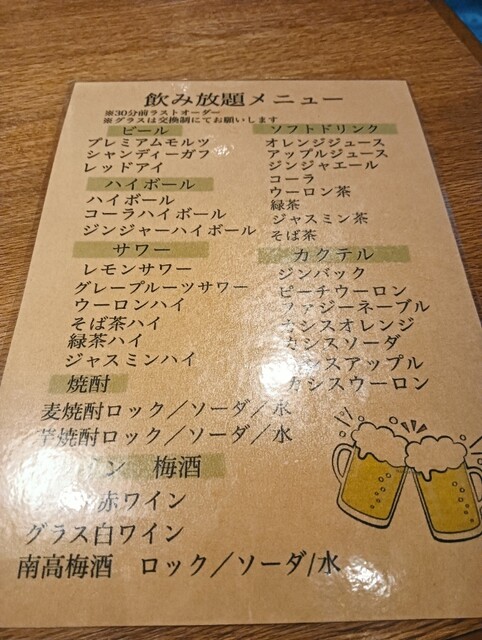 飲み放題メニュー
※30分前ラストオーダー
※グラスは交換制にてお願いします
ビール
プレミアムモルツ
シャンディーガフ
レッドアイ
ハイボール
ハイボール
コーラハイボール
ジンジャーハイボール
サワー
レモンサワー
グレープルーツサワー
ウーロンハイ
そば茶ハイ
緑茶ハイ
ジャスミンハイ
焼酎
麦焼酎ロック／ソーダ／水
芋焼酎ロック／ソーダ／水
梅酒
赤ワイン
グラス白ワイン
南高梅酒 ロック／ソーダ/水
ソフトドリンク
オレンジジュース
アップルジュース
ジンジャエール
コーラ
ウーロン茶
緑茶
ジャスミン茶
そば茶
カクテル
ジンバック
ピーチウーロン
ファジーネーブル
カシスオレンジ
カシスソーダ
カシスアップル
カシスウーロン